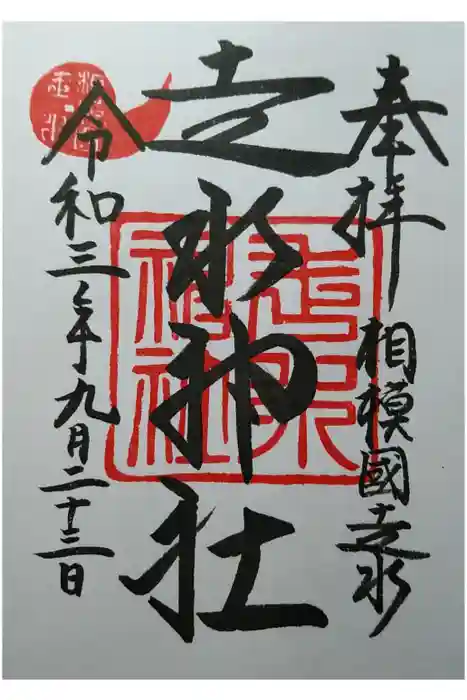 奉拝
相模國走水
走水神社
走水
神社
令和三年九月二十三日